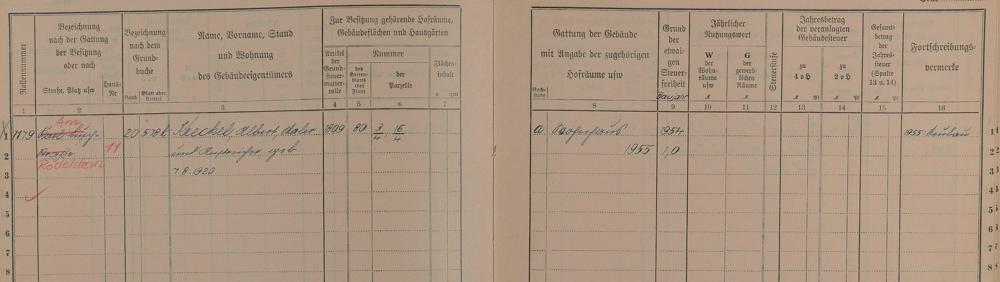 Rollennummer
Bezeichnung
nach der Gattung
der Besitzung
oder nach
Straße, Platz usw
Haus-
Nr
Bezeichnung
nach dem
Grund-
buche
Band
Blatt oder
Artikel
Name, Vorname, Stand
und Wohnung
des Gebäudeeigentümers
Zur Besitzung gehörende Hofräume,
Gebäudeflächen und Hausgärten
Artikel
der
Grund-
steuer-
mutter-
rolle
Nummer
des
Karten-
blatts
der
Flur
der
Parzelle
Flächen-
inhalt
a qm
1 2 3 4 5 6 7
1 1179 Am 20 578b Keockel, Albert, Maler 1909 80 3/4 16/4
2 Rödelstein 11 geb.
3 7.8.1920
4
5
6
7
8
Gattung der Gebäude
mit Angabe der zugehörigen
Hofräume usw
Buch-
stabe
Grund
der
etwai-
gen
Steuer-
freiheit
Baujahr
Jährlicher
Nutzungswert
W
der
Wohn-
räume
G
der
gewerb-
lichen
Räume
Steuerstufe
Jahresbetrag
der veranlagten
Gebäudesteuer
zu
4 v H
zu
2 v H
Gesamt-
betrag
der
Jahres-
steuer
(Spalte
13 u. 14)
Fortschreibungs-
vermerke
8 9 10 11 12 13 14 15 16
a Wohnhaus 1954 1955 Neubau 1
1955 1,0 2
3
4
5
6
7
8